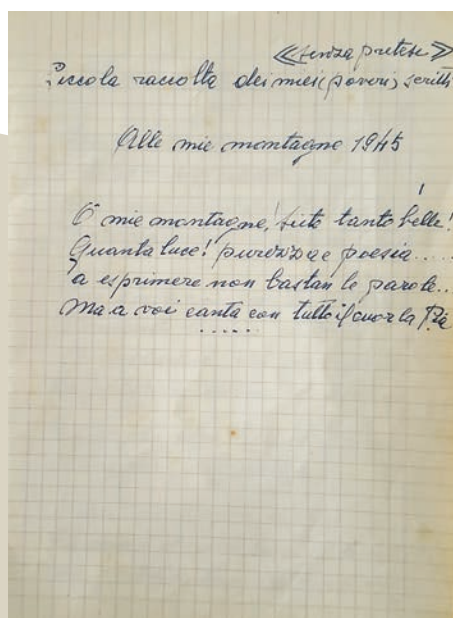 «senza pretese»
Piccola raccolta dei miei (poveri) scritti
Alle mie montagne 1945
O mie montagne, siete tanto belle!
Quanta luce! purezza e poesia.....
a esprimere non bastan le parole..
Ma a voi canta con tutto il cuor la Pia
.....